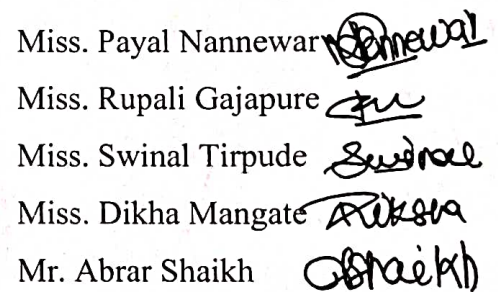 Miss. Payal Nannewar Nannewar
Miss. Rupali Gajapure
Miss. Swinal Tirpude Swinal
Miss. Dikha Mangate Diksha
Mr. Abrar Shaikh AShaikh